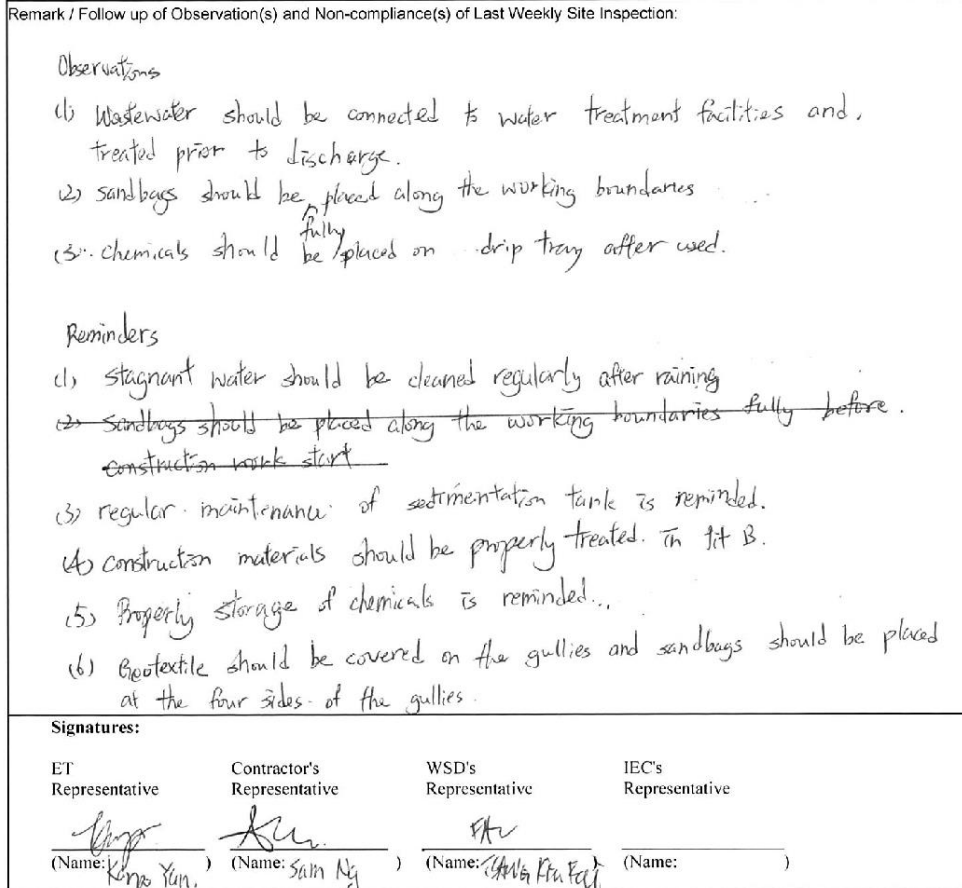 Remark / Follow up of Observation(s) and Non-compliance(s) of Last Weekly Site Inspection:
Observations
(1) Wastewater should be connected to water treatment facilities and,
treated prior to discharge.
(2) sandbags should be fully placed along the working boundaries
(3). chemicals should be placed on drip tray after used.
Reminders
(1) stagnant water should be cleaned regularly after raining
(2) Sandbags should be placed along the working boundaries fully before.
construction work start
(3) regular maintenance of sedimentation tank is reminded.
(4) construction materials should be properly treated. In Pit B.
(5) Properly storage of chemicals is reminded...
(6) Geotextile should be covered on the gullies and sandbags should be placed
at the four sides of the gullies.
Signatures:
ET Contractor's WSD's IEC's
Representative Representative Representative Representative
(Name: Yan. ) (Name: Sam Ng ) (Name: ) (Name: )